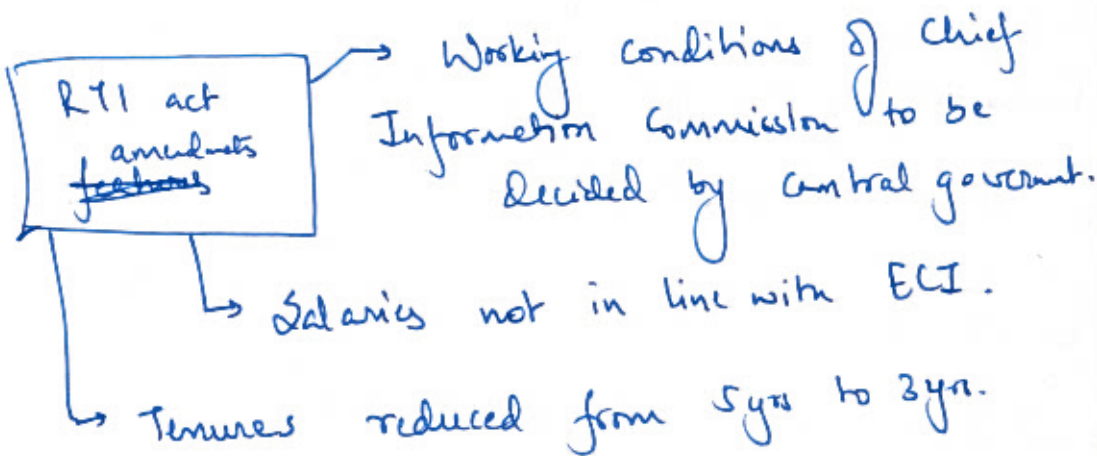 RTI act
amendments
features
→ Working conditions of Chief
Information Commission to be
decided by central government.
→ Salaries not in line with ECI.
→ Tenures reduced from 5yrs to 3yrs.